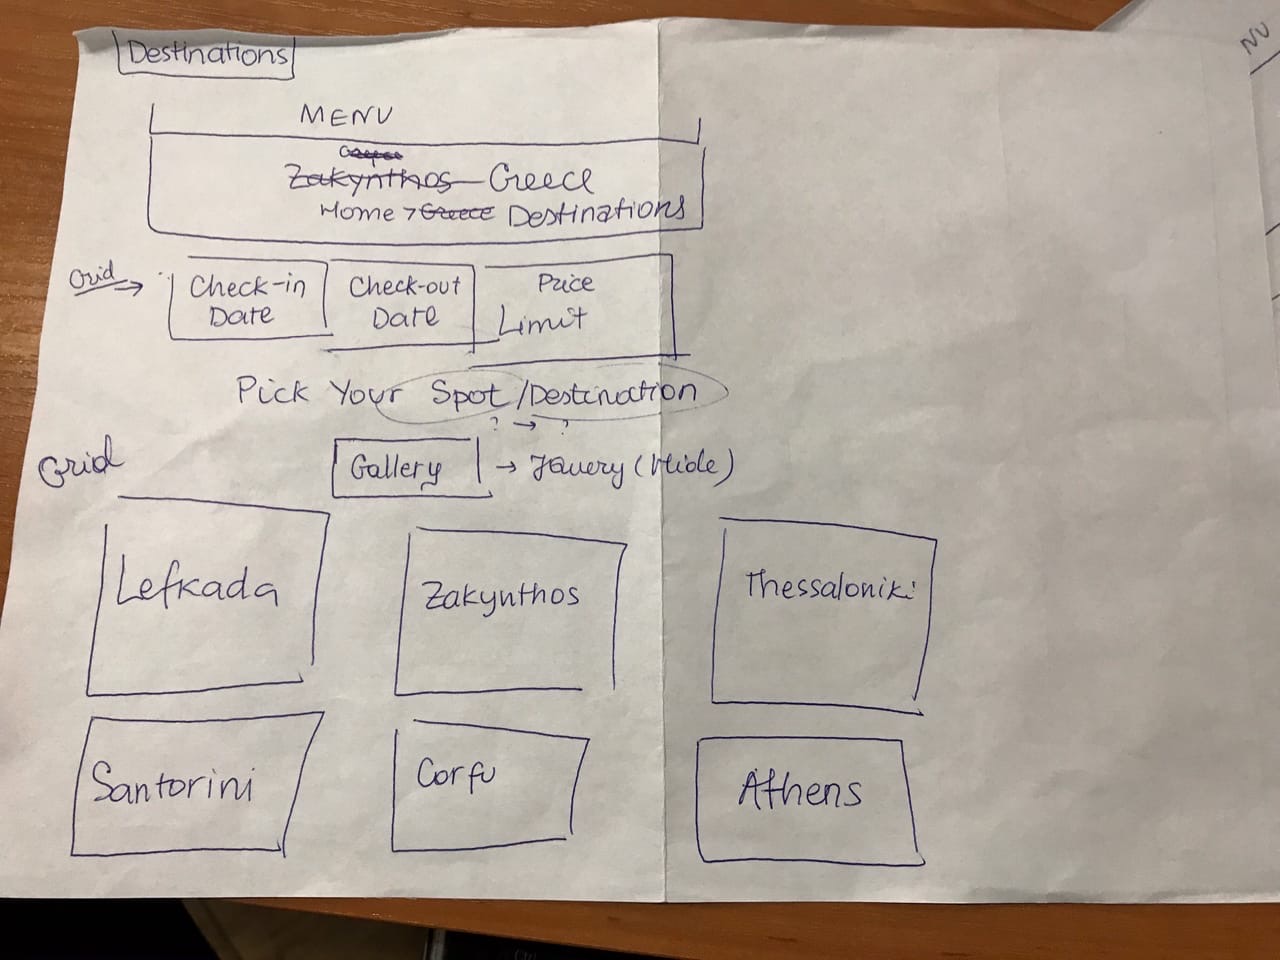 Destinations
MENU
Zakynthos Greece
Home > Greece Destinations
Grid →
Check-in Date
Check-out Date
Price Limit
Pick Your Spot/Destination
? → ?
Grid
Gallery → Jquery (Hide)
Lefkada
Zakynthos
Thessaloniki
Santorini
Corfu
Athens
NU